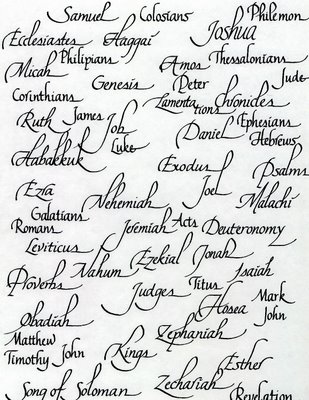 Samuel Colosians Philemon
Ecclesiastes Haggai Joshua
Philipians Thessalonians
Micah Amos Jude
Genesis Peter
Corinthians Lamentations Chronicles
Ruth James Job Ephesians
Luke Daniel Hebrews
Habakkuk Exodus Psalms
Ezra Joel
Nehemiah Malachi
Galatians
Romans Jeremiah Acts Deuteronomy
Leviticus Ezekial Jonah
Proverbs Nahum Isaiah
Judges Titus Mark
Hosea John
Obadiah Zephaniah
Matthew
Timothy John Kings Esther
Song of Soloman Zechariah Revelation